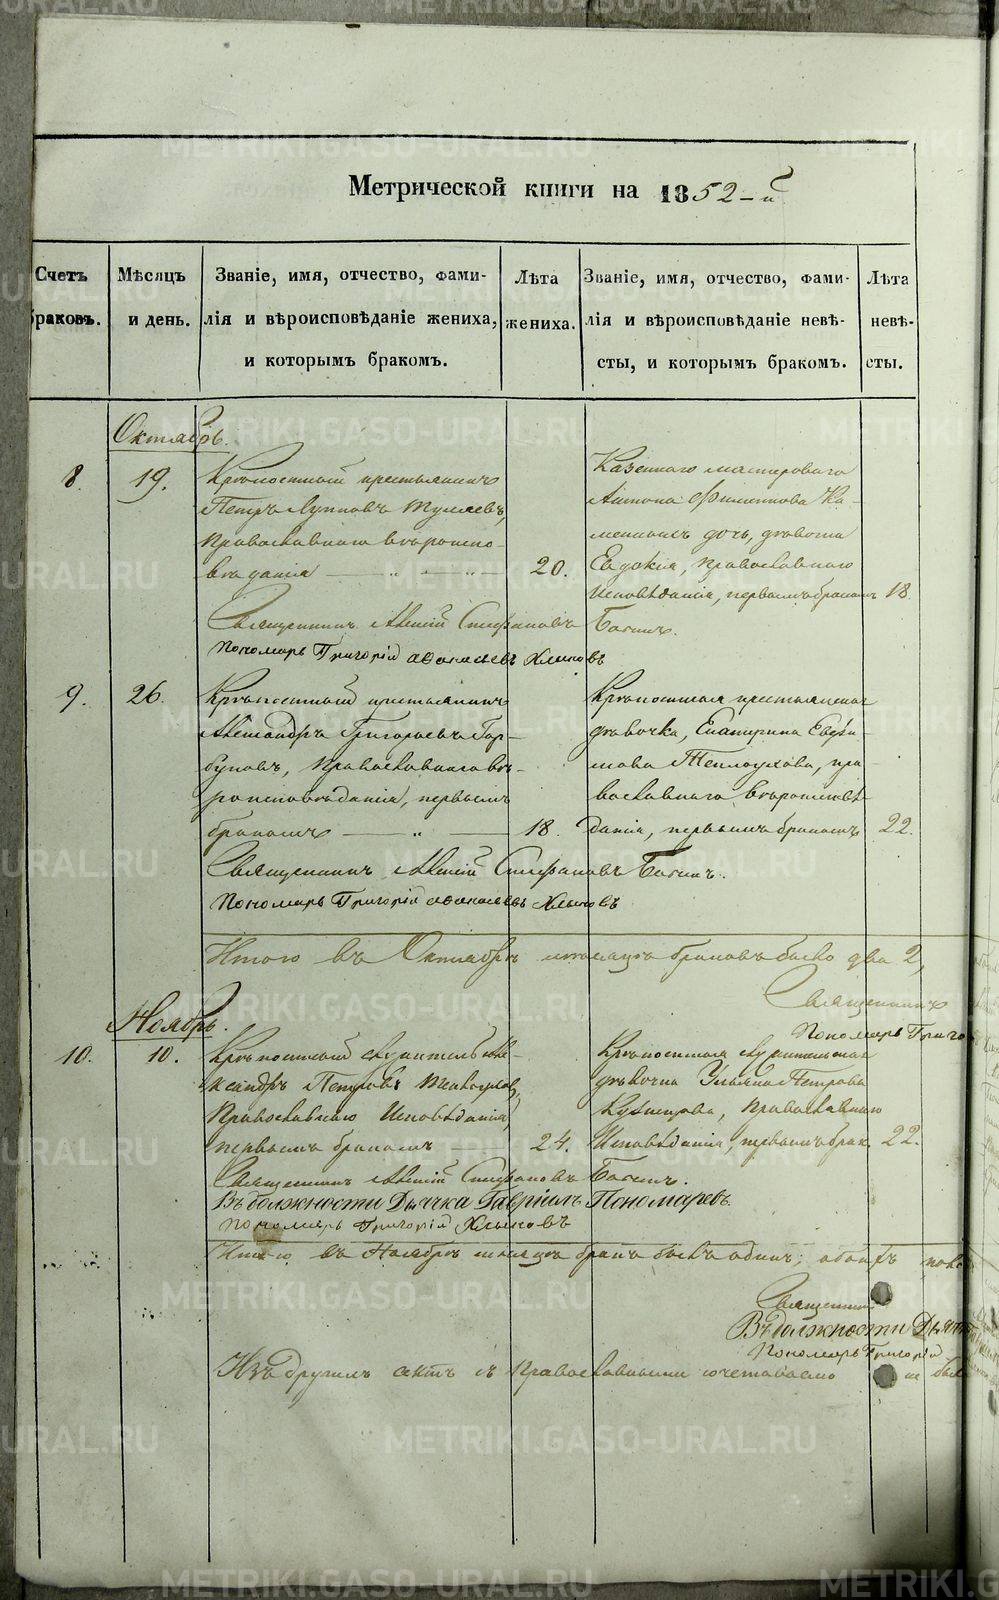 Метрической книги на 1852-й
Счетъ браковъ.
Мѣсяцъ и день.
Званіе, имя, отчество, фами-
лія и вѣроисповѣданіе жениха,
и которымъ бракомъ.
Лѣта
жениха.
Званіе, имя, отчество, фами-
лія и вѣроисповѣданіе невѣ-
сты, и которымъ бракомъ.
Лѣта
невѣ-
сты.
Октябрь.
8. 19.
Крѣпостный крестьянинъ
Петръ
Православнаго вѣроиспо-
вѣданія — " — " — 20.
Казеннаго мастероваго
Антона Филиппова Ка-
дочь, дѣвица
Евдокія, Православнаго
Исповѣданія, первымъ бракомъ 18.
Священникъ Алексій Стефановъ
Пономарь Григорій Афанасьевъ Хлыновъ
9. 26.
Крѣпостный крестьянинъ
Александръ Григорьевъ Гор-
буновъ, Православнаго вѣ-
роисповѣданія, первымъ
бракомъ — " — 18.
Крѣпостная крестьянская
дѣвочка, Екатерина Евфи-
мова Теплоухова, пра-
вославнаго вѣроисповѣ-
данія, первымъ бракомъ 22.
Священникъ Алексій Стефановъ
Пономарь Григорій Афанасьевъ Хлыновъ
Итого въ Октябрѣ мѣсяцѣ браковъ было два 2,
Священникъ
Пономарь Григо
Ноябрь.
10. 10.
Крѣпостный служитель Але-
ксандръ Петровъ
Православнаго Исповѣданія,
первымъ бракомъ — 24.
Крѣпостная служительская
дѣвочка Ульяна Петрова
Кузнецова, Православнаго
Исповѣданія, первымъ брак. 22.
Священникъ Алексій Стефановъ
Въ должности Дьячка Гавріилъ Пономаревъ.
Пономарь Григорій Хлыновъ
Итого въ Ноябрѣ мѣсяцѣ бракъ былъ одинъ;
Священникъ
Въ должности Дьячк
Пономарь Григорій
Изъ другихъ сектъ съ Православными сочетаваемо не было
METRIKI.GASO-URAL.RU